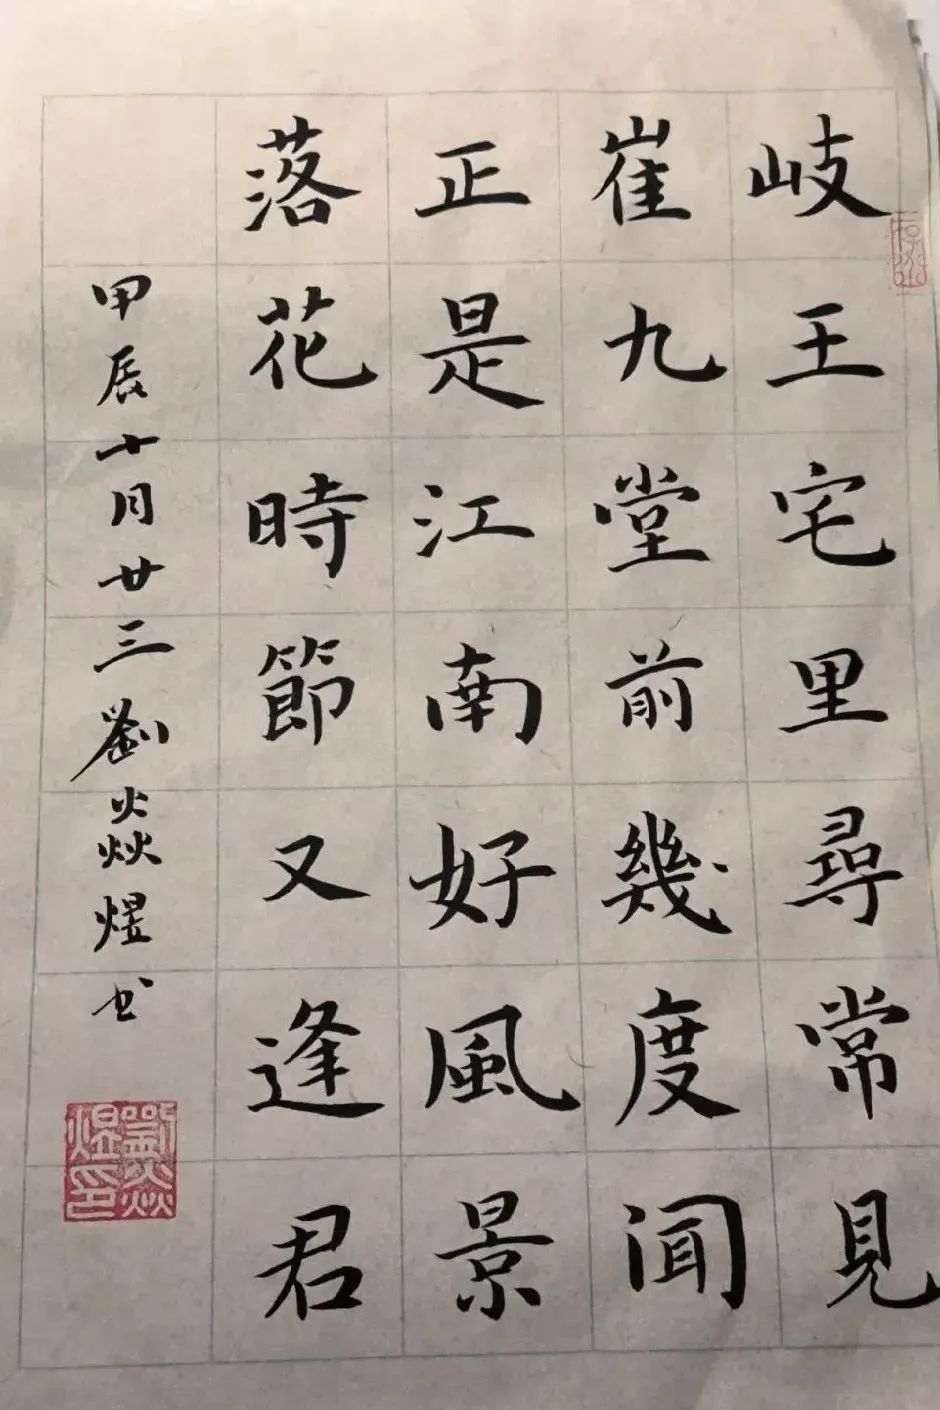 岐王宅里尋常見
崔九堂前幾度闻
正是江南好風景
落花時節又逢君
甲辰十月廿三劉焱煜书
劉焱煜印